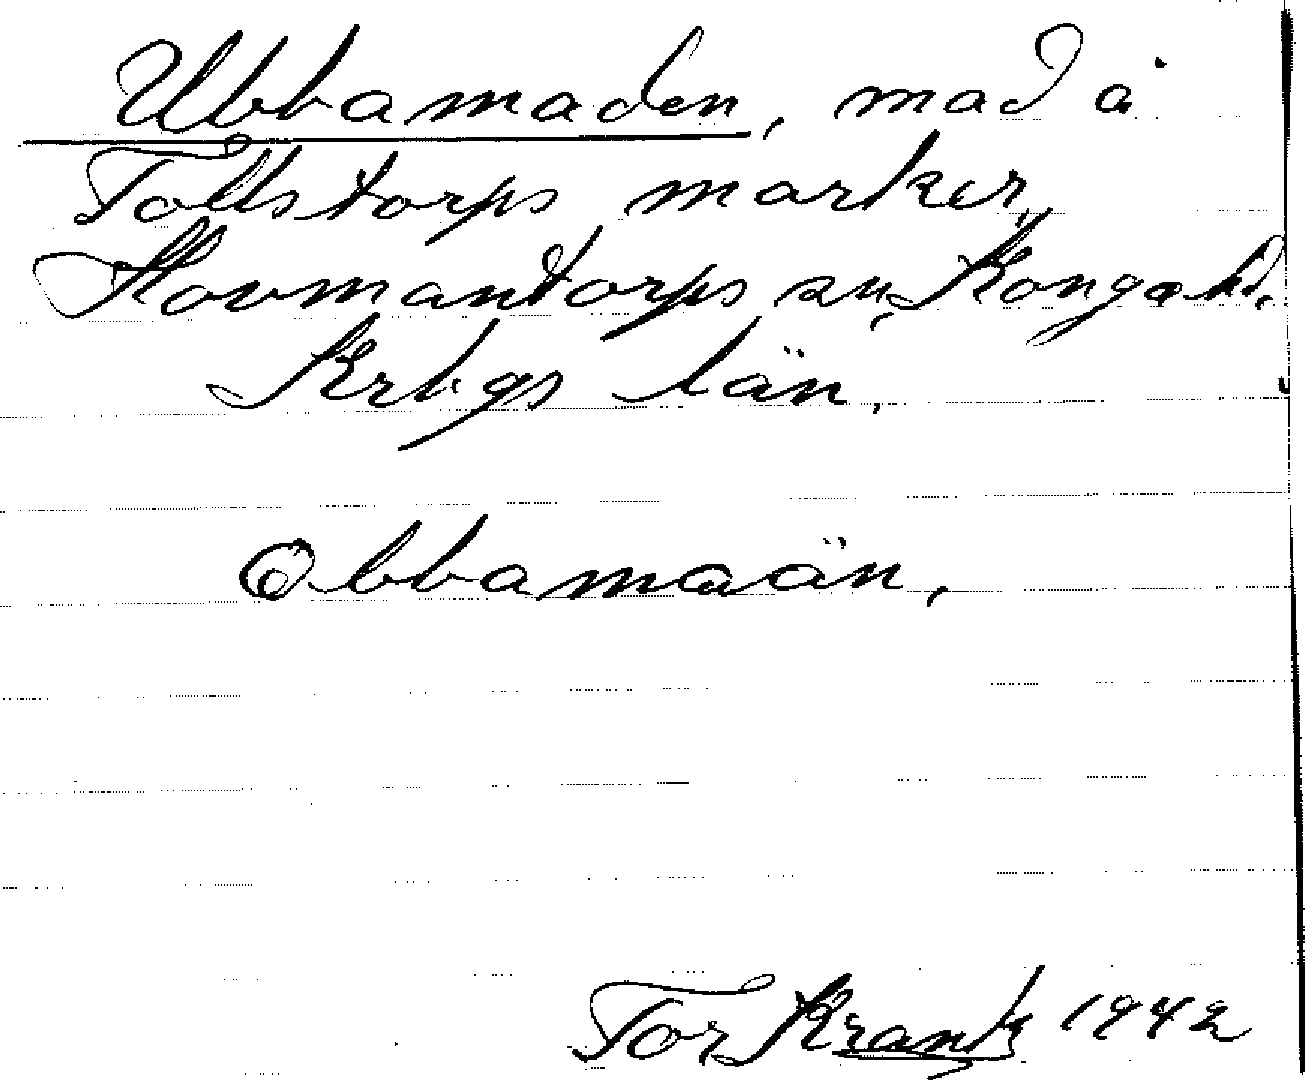 Ubbamaden, mad å
Tollstorps marker,
Hovmantorps sn, Konga hd,
Krbgs län,
Obbamaän,
Tor Krank 1942